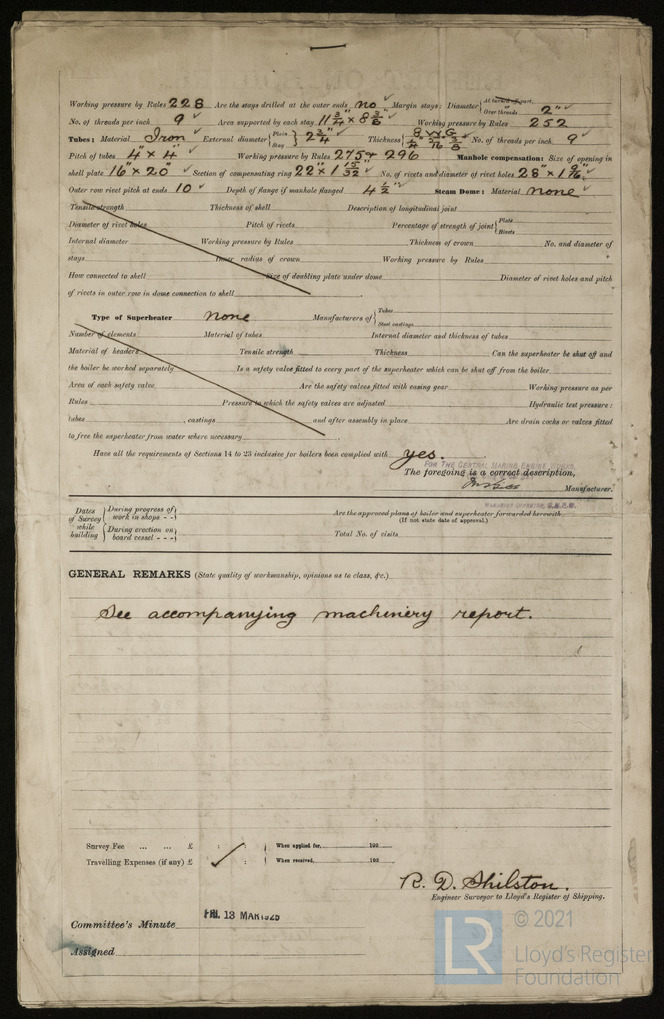 Working pressure by Rules 228 Are the stays drilled at the outer ends no Margin stays: Diameter { At turned off part, Over threads 2"
No. of threads per inch 9 Area supported by each stay 11 3/4" × 8 3/8" Working pressure by Rules 252
Tubes: Material Iron External diameter { Plain Stay 2 3/4" Thickness { 8 W.G. 1/4" 5/16 3/8 No. of threads per inch 9
Pitch of tubes 4" × 4" Working pressure by Rules 275 & 296 Manhole compensation: Size of opening in
shell plate 16" × 20" Section of compensating ring 22" × 1 15/32" No. of rivets and diameter of rivet holes 28" × 1
Outer row rivet pitch at ends 10 Depth of flange if manhole flanged 4 1/2" Steam Dome: Material none
Tensile strength Thickness of shell Description of longitudinal joint
Diameter of rivet holes Pitch of rivets Percentage of strength of joint { Plate Rivets
Internal diameter Working pressure by Rules Thickness of crown No. and diameter of
stays Inner radius of crown Working pressure by Rules
How connected to shell Size of doubling plate under dome Diameter of rivet holes and pitch
of rivets in outer row in dome connection to shell
Type of Superheater none Manufacturers of { Tubes Steel castings
Number of elements Material of tubes Internal diameter and thickness of tubes
Material of headers Tensile strength Thickness Can the superheater be shut off and
the boiler be worked separately Is a safety valve fitted to every part of the superheater which can be shut off from the boiler
Area of each safety valve Are the safety valves fitted with easing gear Working pressure as per
Rules Pressure to which the safety valves are adjusted Hydraulic test pressure:
tubes , castings and after assembly in place Are drain cocks or valves fitted
to free the superheater from water where necessary
Have all the requirements of Sections 14 to 23 inclusive for boilers been complied with yes.
FOR THE CENTRAL MARINE ENGINE WORKS
The foregoing is a correct description,
Manufacturer.
Dates of Survey while building { During progress of work in shops - - During erection on board vessel - - -
Are the approved plans of boiler and superheater forwarded herewith
(If not state date of approval.)
Total No. of visits
GENERAL REMARKS (State quality of workmanship, opinions as to class, &c.)
See accompanying machinery report.
Survey Fee ... ... £ : : When applied for, 192
Travelling Expenses (if any) £ : : When received, 192
R. D. Shilston.
Engineer Surveyor to Lloyd's Register of Shipping.
Committee's Minute FRI. 13 MAR 1925
Assigned
LR
© 2021
Lloyd's Register
Foundation